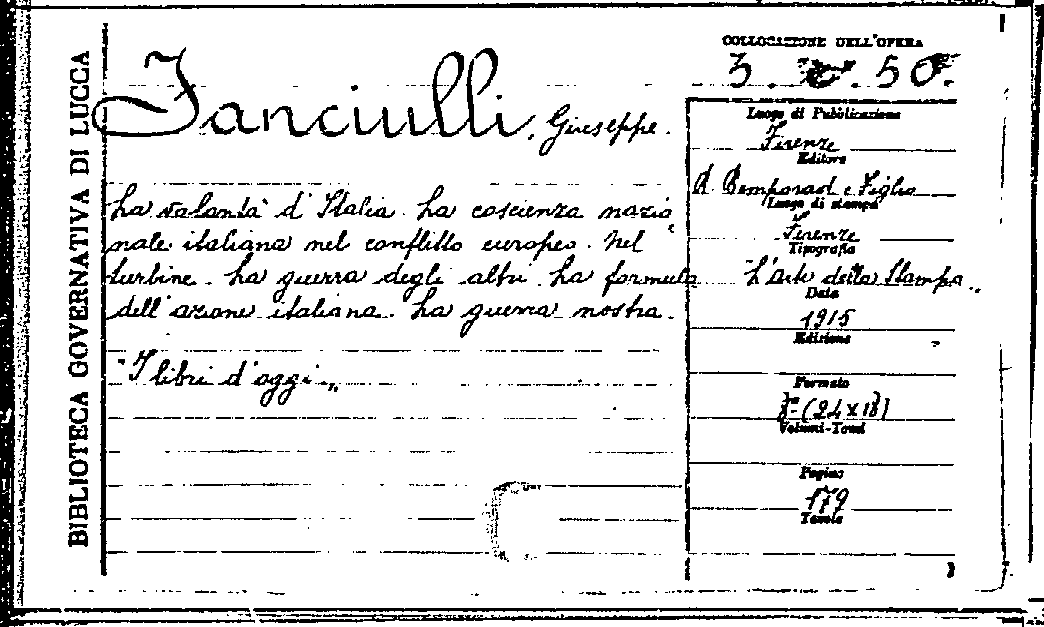 BIBLIOTECA GOVERNATIVA DI LUCCA
Fanciulli, Giuseppe.
La volontà d'Italia. La coscienza nazio-
nale italiana nel conflitto europeo. Nel
turbine. La guerra degli altri. La formula
dell'azione italiana. La guerra nostra.
"I libri d'oggi„
COLLOCAZIONE DELL'OPERA
3. 50.
Luogo di Pubblicazione
Firenze
Editore
R. Bemporad e Figlio
Luogo di stampa
Firenze
Tipografia
L'Arte della Stampa.
Data
1915
Edizione
Formato
Volumi-Tomi
Pagine
179
Tavole